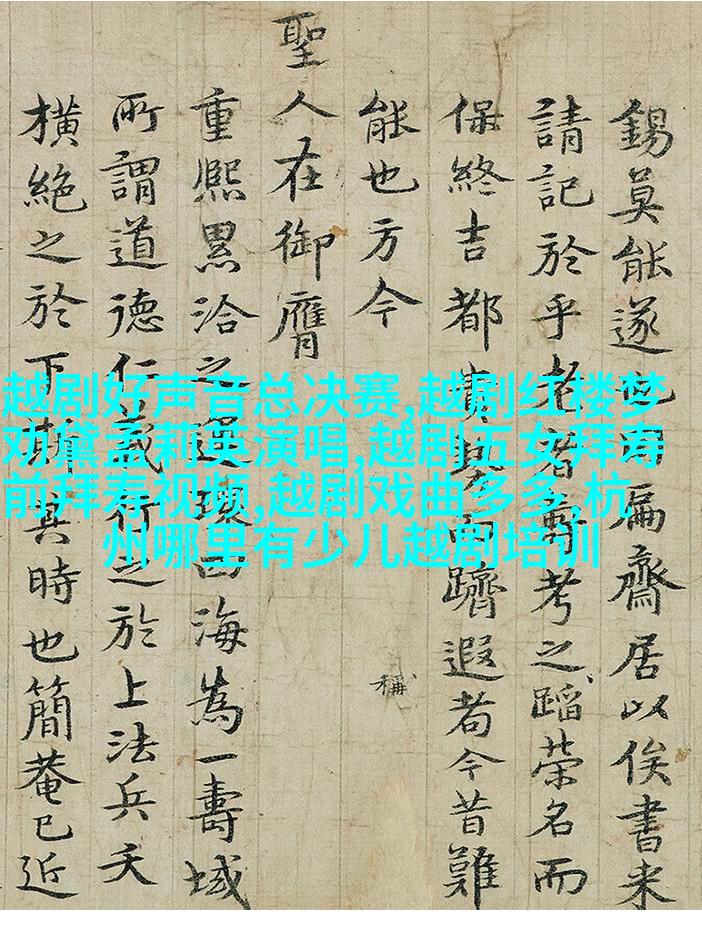 錫莫能遂也扁齋居以俟書来
請記於乎老者壽考之蹈榮名而
保終吉都貴勢而躋遐者今昔難
能也方今
稱
聖人在御膺
重熙累洽之運環四海為一壽域
所謂道德仁義行之於上法兵夭
横絶之於下斯其時也簡菴已近
越剧好声音总决赛,越剧红楼梦
劝黛孟莉英演唱,越剧五女拜寿
前拜寿视频,越剧戏曲多多,杭
州哪里有少儿越剧培训